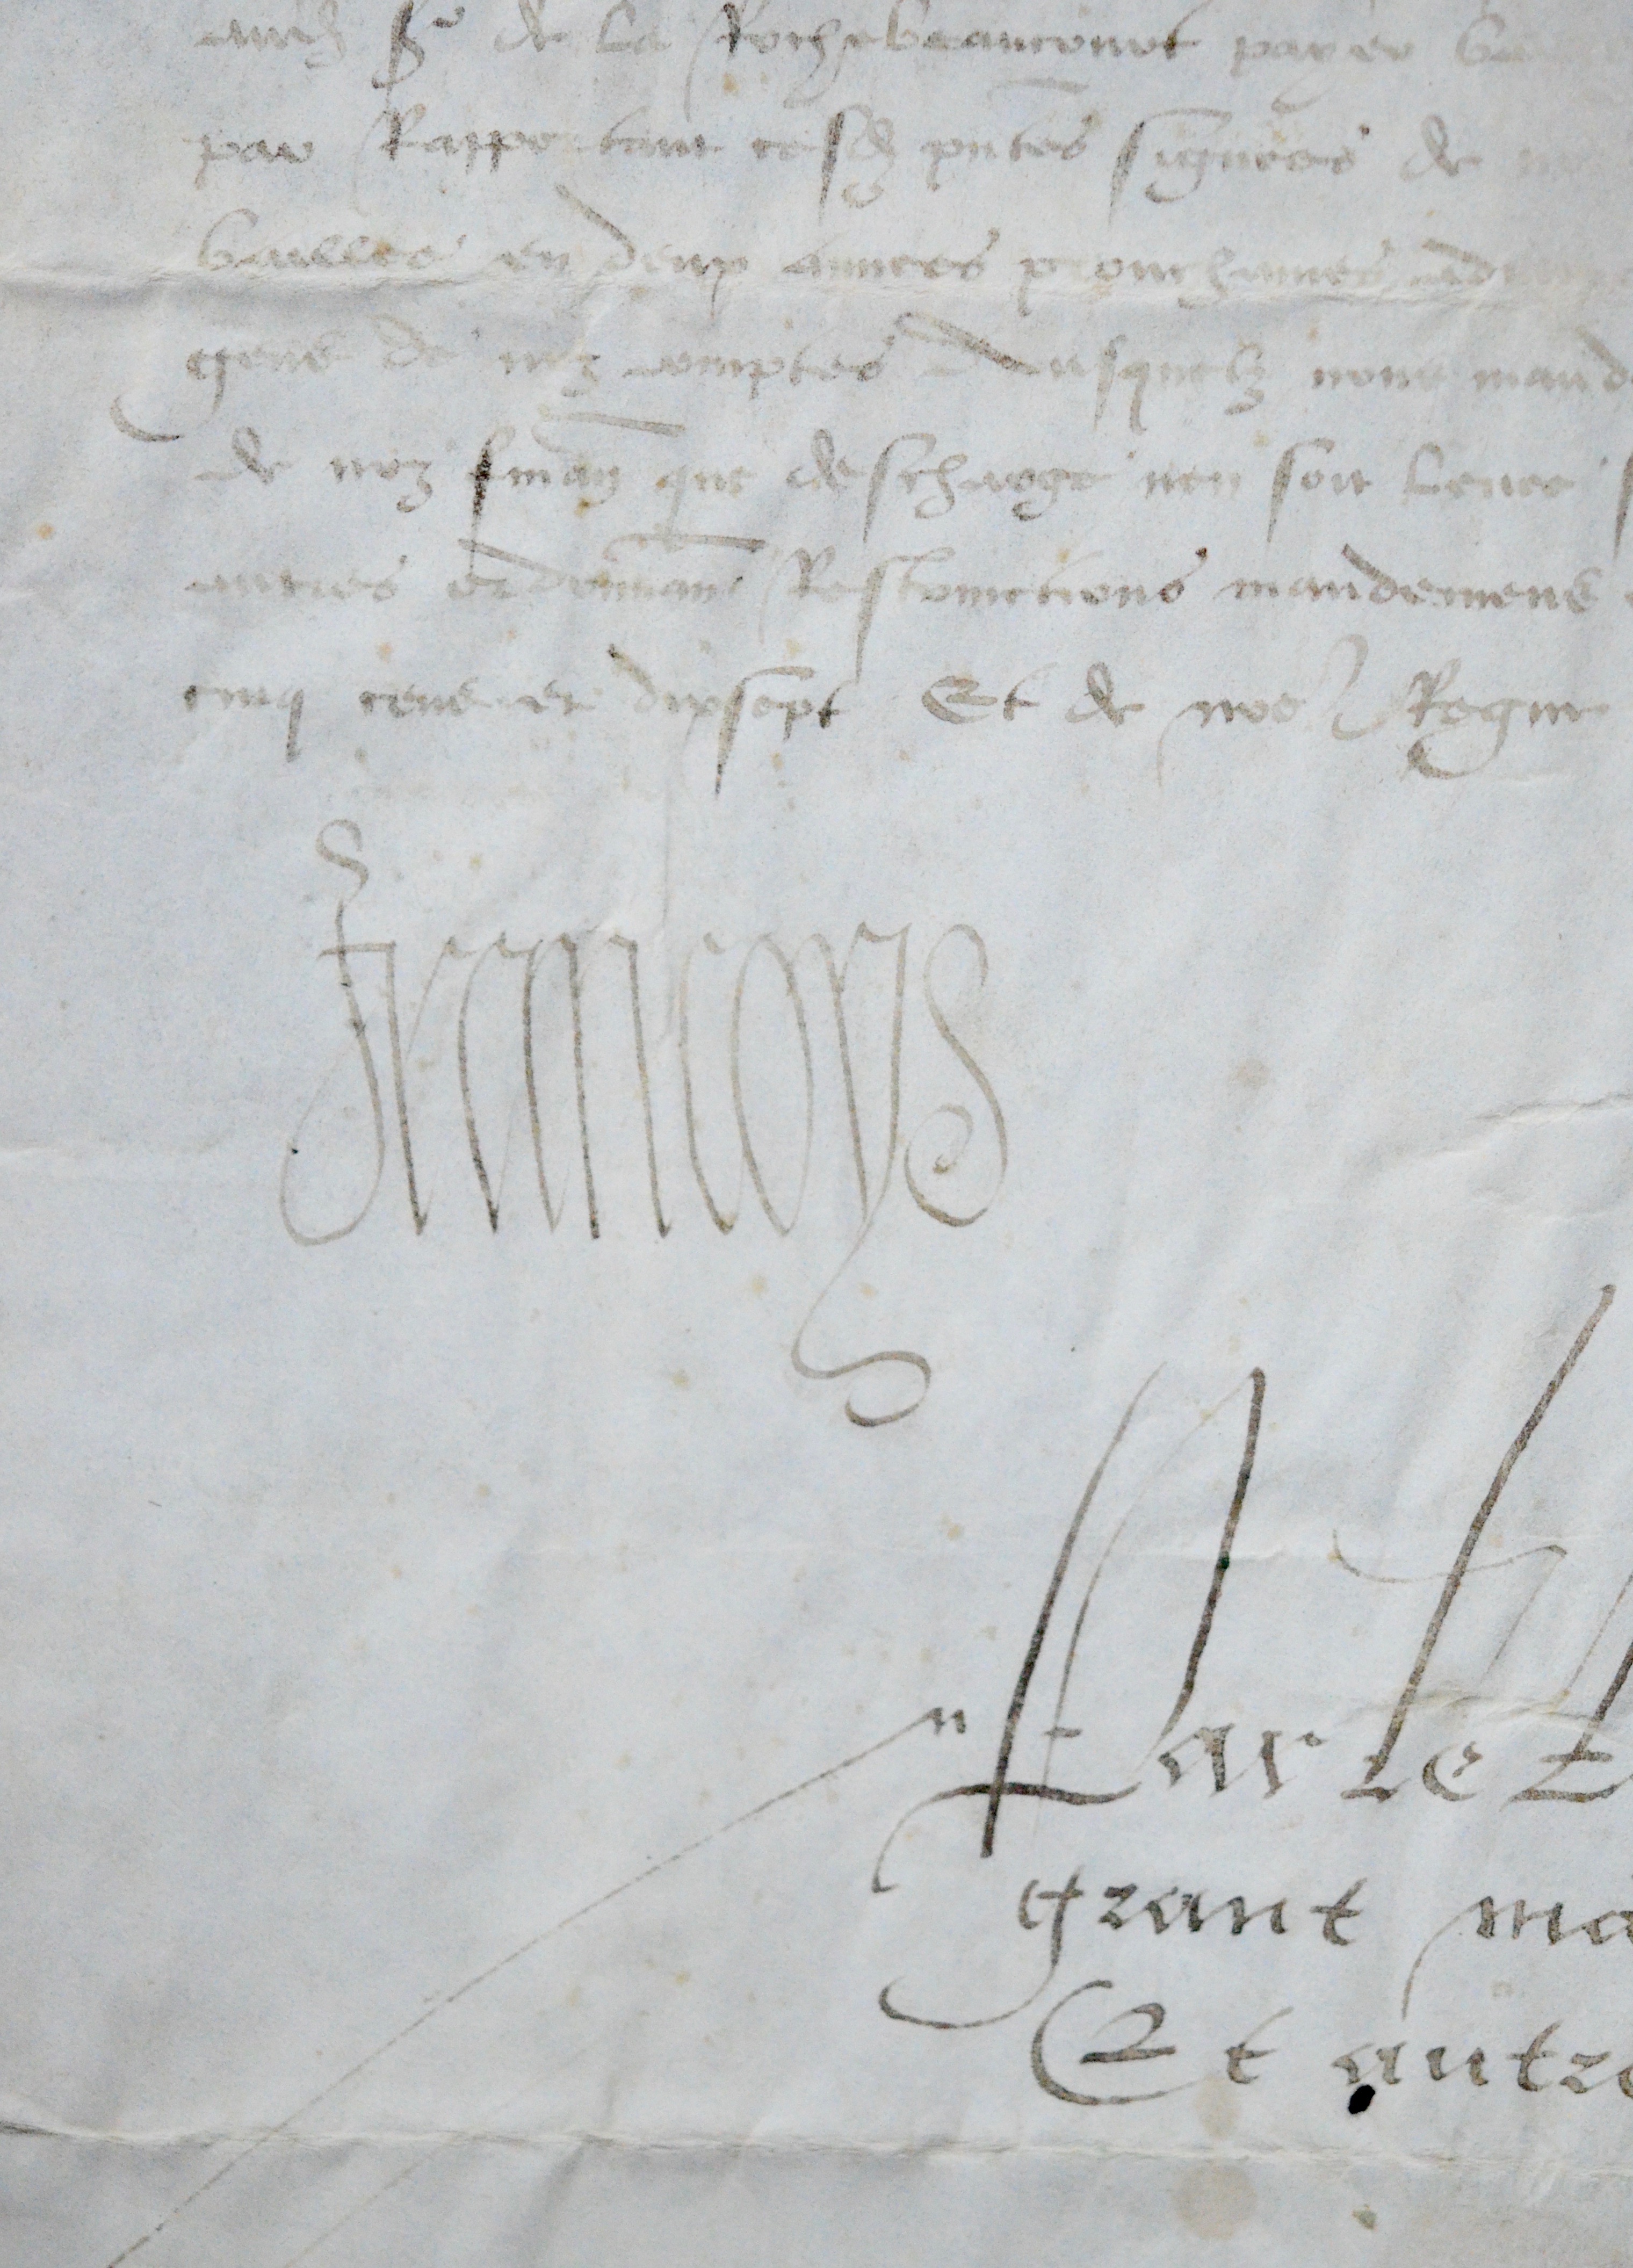 audit Sr de la Rochebeaucourt payer
par Rapportant cesd pntes signees de
baillee en deux annees prouchaines
gens de noz comptes Ausquelz nous mand
de noz finan que descharge nen soit levee
autres ordonnan Restrinctions mandemens
cinq cens et dixsept Et de nre Regne
Francoys
Par le
grant ma
Et autre